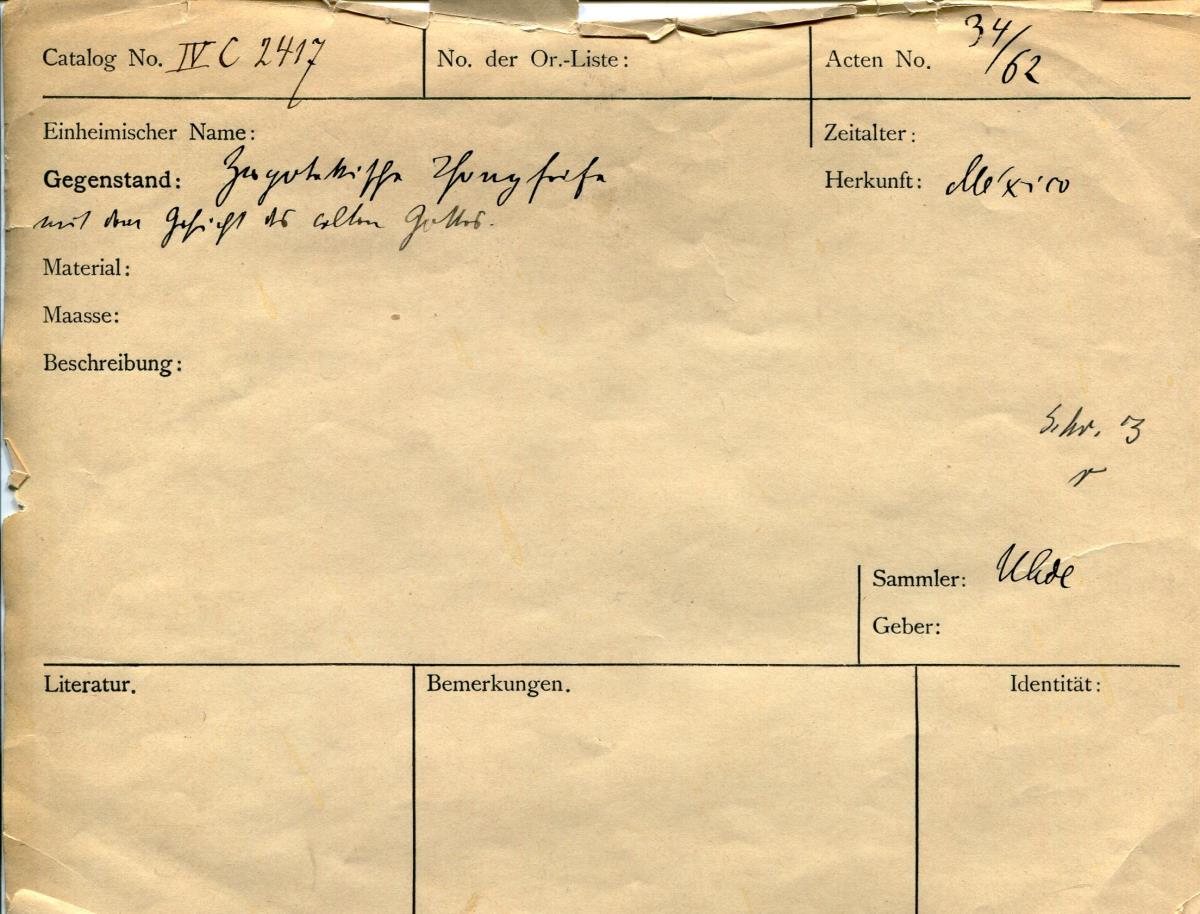 Catalog No. IV C 2417
No. der Or.-Liste:
Acten No. 34/62
Einheimischer Name:
Zeitalter:
Gegenstand: Zapotekische Thonpfeife
mit dem Gesicht des alten Gottes.
Herkunft: México
Material:
Maasse:
Beschreibung:
Schr. 3
r
Sammler: Uhde
Geber:
Literatur.
Bemerkungen.
Identität: